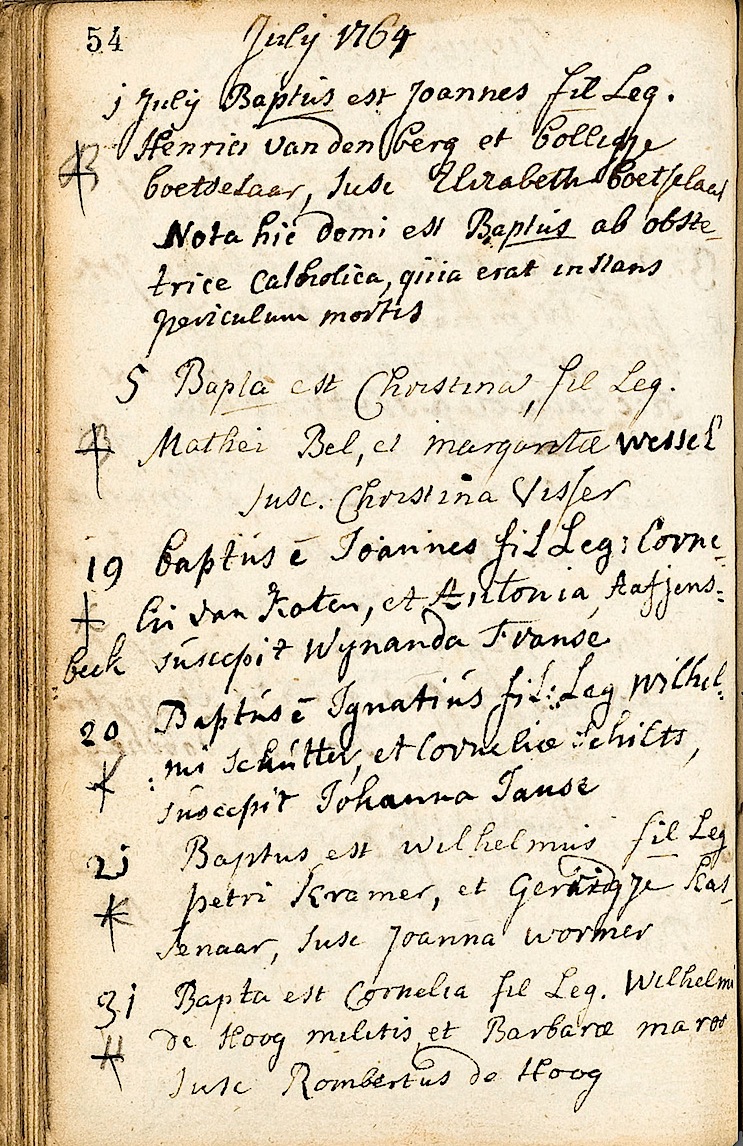 54 July 1764
j July Baptus est Joannes fil Leg.
Henrici van den berg et
boetselaar, Susc Elizabeth boetselaar
Nota hic domi est Baptus ab obste-
trice Catholica, quia erat instans
periculum mortis
5 Bapta est Christina, fil Leg.
Mathei Bel, et margaritæ wessel
susc. Christina Visser
19 baptus ē Joannes fil Leg: Corne-
lii van Koten, et Antonia,
beek suscepit Wynanda Franse
20 Baptus ē Ignatius fil: Leg Wilhel:
:mi schutter, et Corneliæ Schilts,
suscepit Johanna Janse
2j Baptus est wilhelmus fil Leg
petri Kramer, et Kas-
senaar, Susc Joanna wormer
3j Bapta est Cornelia fil Leg. Wilhelmi
de Hoog militis et Barbaræ
Susc Rombertus de Hoog